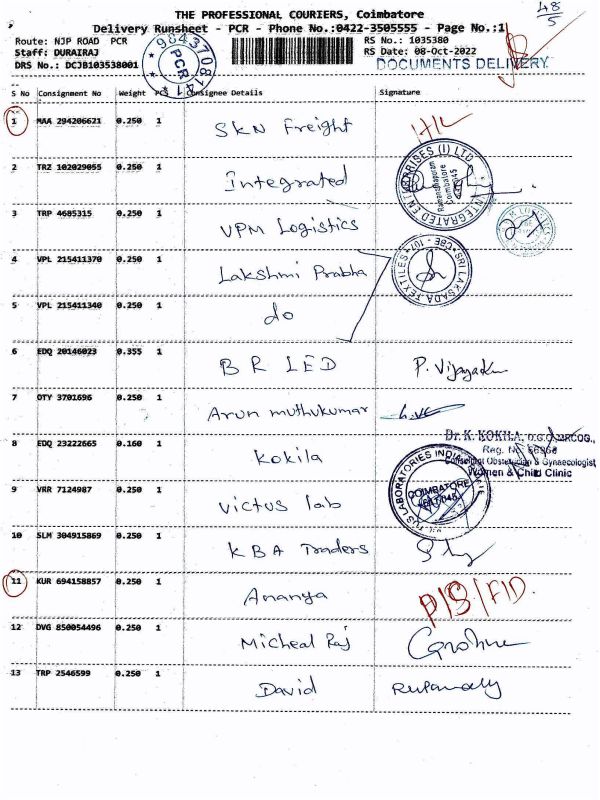 THE PROFESSIONAL COURIERS, Coimbatore
48/5
Delivery Runsheet - PCR - Phone No.:0422-3505555 - Page No.:1
Route: NJP ROAD PCR
RS No.: 1035380
Staff: DURAIRAJ
RS Date: 08-Oct-2022
DRS No.: DCJB103538001
DOCUMENTS DELIVERY
9843708141
PCR
S No Consignment No Weight PCS Consignee Details Signature
1 MAA 294206621 0.250 1 SKN Freight
2 TRZ 102029055 0.250 1 Integrated
ENTERPRISES (I) LTD INTEGRATED
Ramanathapuram
Coimbatore
3 TRP 4685315 0.250 1 VPM Logistics
4 VPL 215411370 0.250 1 Lakshmi Prabha
SRI LAKSADA TEXTILES CBE - 107
5 VPL 215411340 0.250 1 do
6 EDQ 20146023 0.355 1 B R LED P. Vijayaku
7 OTY 3701696 0.250 1 Arun muthukumar
8 EDQ 23222665 0.160 1 Kokila
Dr. K. KOKILA, D.G.O., MRCOG.,
Reg. No.
Consultant Obstetrician & Gynaecologist
Women & Child Clinic
9 VRR 7124987 0.250 1 Victus lab
LABORATORIES INDIA
COIMBATORE
10 SLM 304915869 0.250 1 KBA Traders
11 KUR 694158857 0.250 1 Ananya P/S/FID.
12 DVG 850054496 0.250 1 Micheal Raj
13 TRP 2546599 0.250 1 David